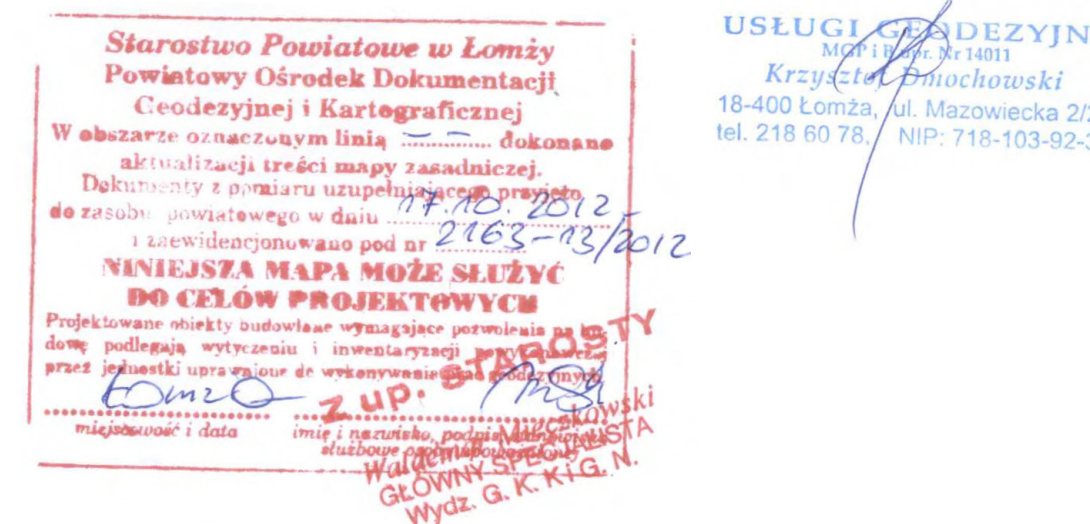 Starostwo Powiatowe w Łomży
Powiatowy Ośrodek Dokumentacji
Geodezyjnej i Kartograficznej
W obszarze oznaczonym linią ............ dokonano
aktualizacji treści mapy zasadniczej.
Dokumenty z pomiaru uzupełniającego przyjęto
do zasobu powiatowego w dniu 17.10.2012
i zaewidencjonowano pod nr 2163-13/2012
NINIEJSZA MAPA MOŻE SŁUŻYĆ
DO CELÓW PROJEKTOWYCH
Projektowane obiekty budowlane wymagające pozwolenia na bu-
dowę podlegają wytyczeniu i inwentaryzacji
przez jednostki uprawnione do wykonywania prac geodezyjnych
Łomża
miejscowość i data
imię i nazwisko, podpis,
służbowe
z up. STAROSTY
Waldemar
GŁÓWNY SPECJALISTA
Wydz. G. K. K i G. N.
USŁUGI GEODEZYJN
MGP i B upr. Nr 14011
Krzysztof Dmochowski
18-400 Łomża, ul. Mazowiecka 2/
tel. 218 60 78, NIP: 718-103-92-